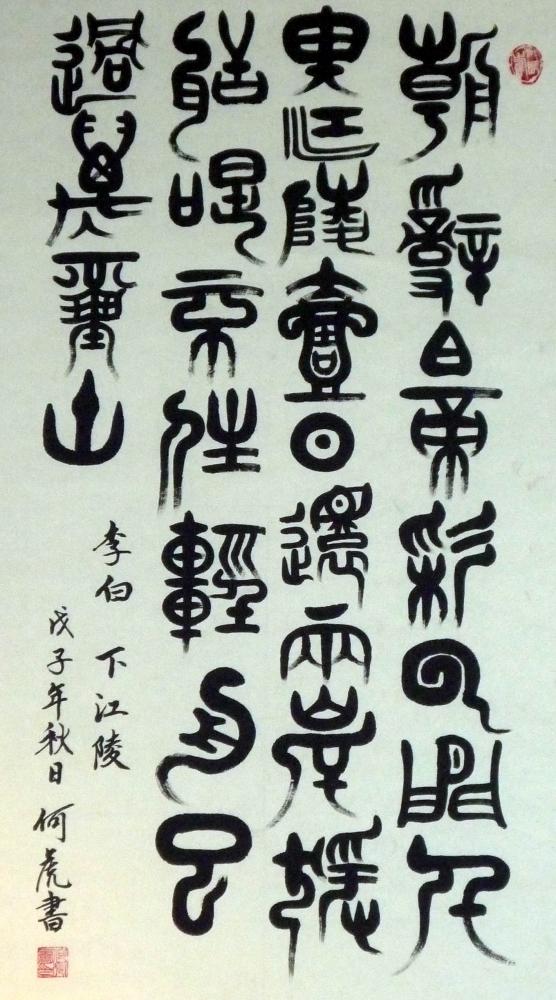 朝辭白帝彩云間千
里江陵壹日還兩岸猿
聲啼不住輕舟已
過萬重山
李白 下江陵
戊子年秋日 何虎書